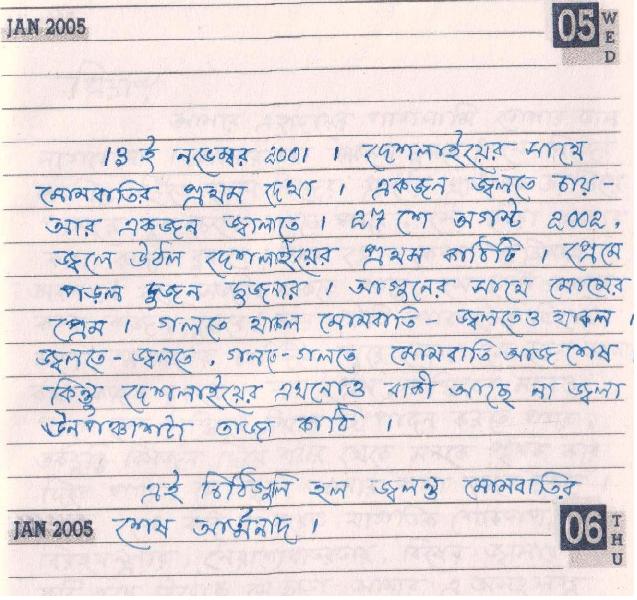 JAN 2005 05 WED
১৩ ই নভেম্বর ২০০১ । দেশলাইয়ের সাথে
মোমবাতির প্রথম দেখা । একজন জ্বলতে চায় -
আর একজন জ্বালতে । ২৭ শে অগস্ট ২০০২ .
জ্বলে উঠল দেশলাইয়ের প্রথম কাঠিটি । প্রেমে
পড়ল দুজন দুজনার । আগুনের সাথে মোমের
প্রেম - গলতে থাকল মোমবাতি - জ্বলতেও থাকল ।
জ্বলতে - জ্বলতে , গলতে - গলতে মোমবাতি আজ শেষ
কিন্তু দেশলাইয়ের এখনোও বাকী আছে না জ্বলা
ঊনপঞ্চাশটা তাজা কাঠি ।
এই চিঠিগুলি হল জ্বলন্ত মোমবাতির
শেষ আর্তনাদ ।
JAN 2005 06 THU